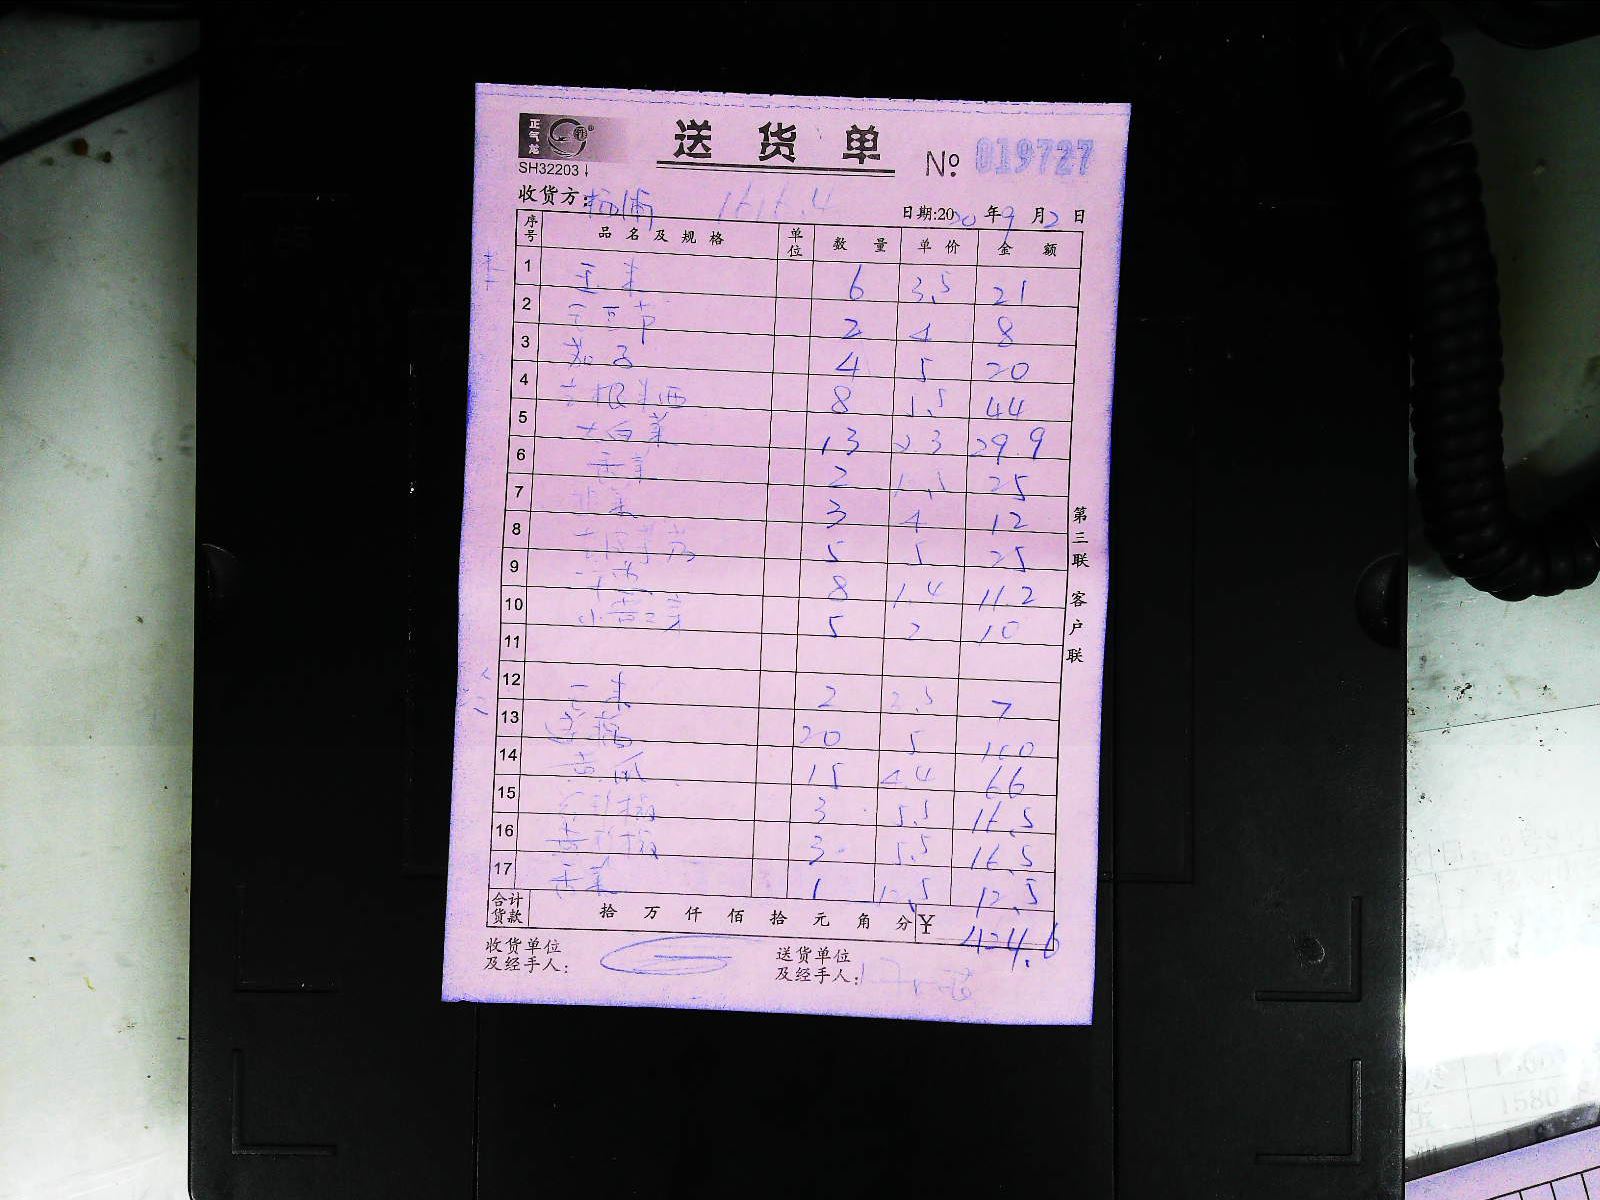 正气苑
送货单
SH32203
№ 019727
收货方: 杨浦 1616.4
日期:2020年9月2日
序号 品名及规格 单位 数量 单价 金额
1 玉米 6 3.5 21
2 2 4 8
3 茄子 4 5 20
4 8 5.5 44
5 大白菜 13 2.3 29.9
6 香菜 2 12.5 25
7 韭菜 3 4 12
8 5 5 25
9 8 1.4 11.2
10 5 2 10
11
12 玉米 2 3.5 7
13 20 5 100
14 黄瓜 15 4.4 66
15 红彩椒 3 5.5 16.5
16 黄彩椒 3 5.5 16.5
17 香菜 1 12.5 12.5
合计货款 拾 万 仟 佰 拾 元 角 分 ¥ 424.6
收货单位及经手人:
送货单位及经手人:
第三联 客户联
1580